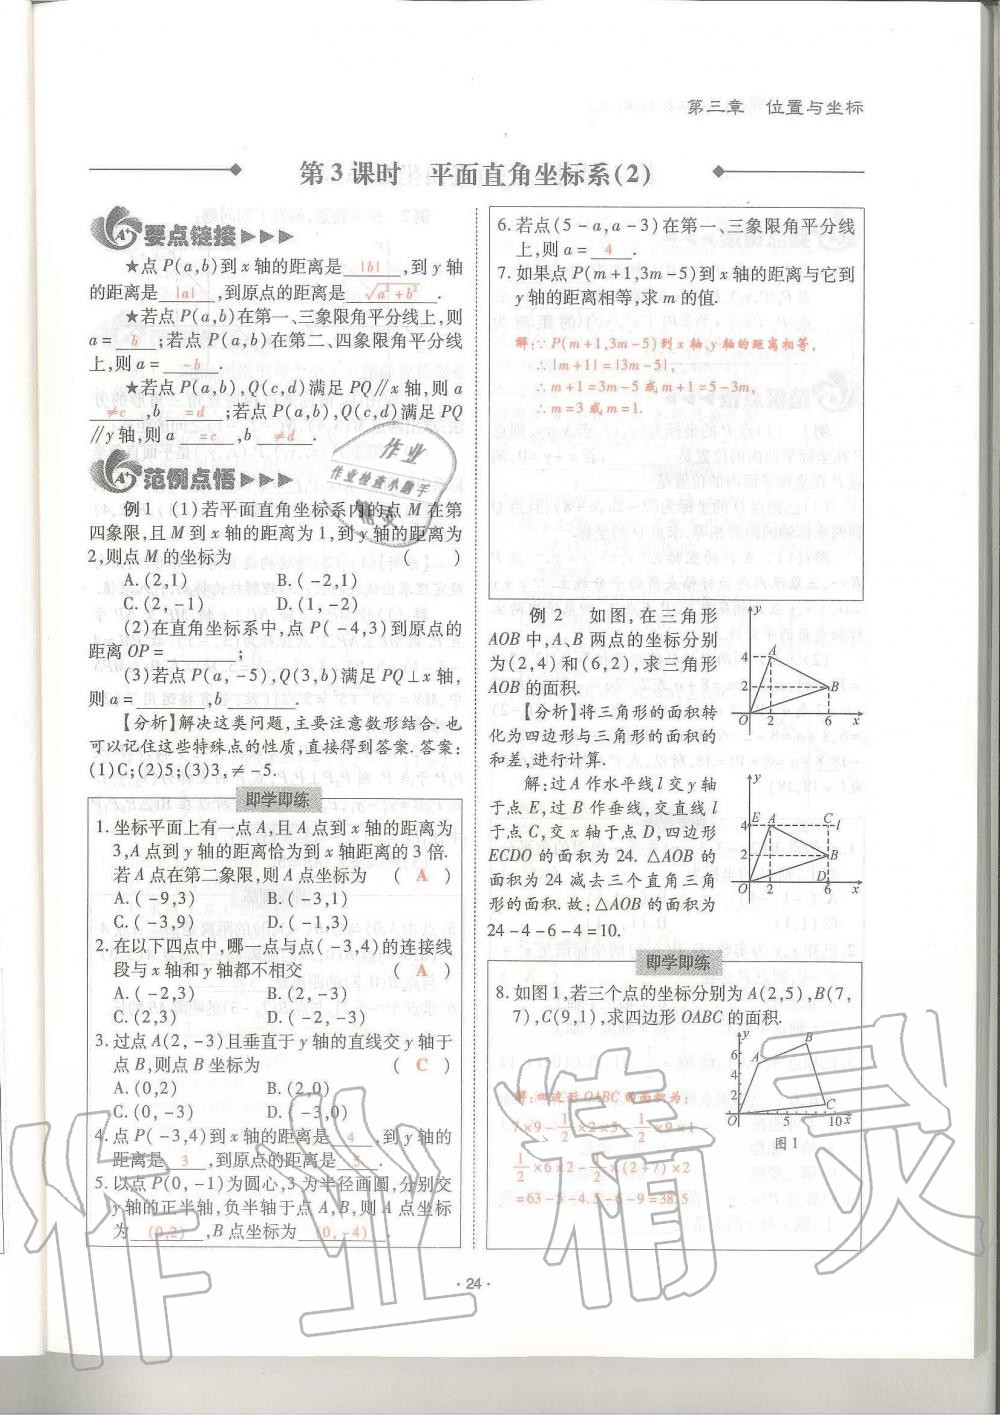 第三章　位置与坐标
第3课时　平面直角坐标系(2)
要点链接
★点P(a,b)到x轴的距离是 |b| ,到y轴
的距离是 |a| ,到原点的距离是 √(a²+b²) .
★若点P(a,b)在第一、三象限角平分线上,则
a= b ;若点P(a,b)在第二、四象限角平分线
上,则a= -b .
★若点P(a,b),Q(c,d)满足PQ∥x轴,则a
≠c ,b =d ;若点P(a,b),Q(c,d)满足PQ
∥y轴,则a =c ,b ≠d .
范例点悟
例1　(1)若平面直角坐标系内的点M在第
四象限,且M到x轴的距离为1,到y轴的距离为
2,则点M的坐标为　(　)
A.(2,1)　B.(-2,1)
C.(2,-1)　D.(1,-2)
(2)在直角坐标系中,点P(-4,3)到原点的
距离OP=______;
(3)若点P(a,-5),Q(3,b)满足PQ⊥x轴,
则a=______,b______.
【分析】解决这类问题,主要注意数形结合.也
可以记住这些特殊点的性质,直接得到答案.答案:
(1)C;(2)5;(3)3,≠-5.
即学即练
1.坐标平面上有一点A,且A点到x轴的距离为
3,A点到y轴的距离恰为到x轴距离的3倍.
若A点在第二象限,则A点坐标为　( A )
A.(-9,3)　B.(-3,1)
C.(-3,9)　D.(-1,3)
2.在以下四点中,哪一点与点(-3,4)的连接线
段与x轴和y轴都不相交　( A )
A.(-2,3)　B.(2,-3)
C.(2,3)　D.(-2,-3)
3.过点A(2,-3)且垂直于y轴的直线交y轴于
点B,则点B坐标为　( C )
A.(0,2)　B.(2,0)
C.(0,-3)　D.(-3,0)
4.点P(-3,4)到x轴的距离是 4 ,到y轴的
距离是 3 ,到原点的距离是 5 .
5.以点P(0,-1)为圆心,3为半径画圆,分别交
y轴的正半轴,负半轴于点A,B,则A点坐标
为 (0,2) ,B点坐标为 (0,-4) .
6.若点(5-a,a-3)在第一、三象限角平分线
上,则a= 4 .
7.如果点P(m+1,3m-5)到x轴的距离与它到
y轴的距离相等,求m的值.
解:∵P(m+1,3m-5)到x轴、y轴的距离相等,
∴|m+1|=|3m-5|,
∴m+1=3m-5或m+1=5-3m,
∴m=3或m=1.
例2　如图,在三角形
AOB中,A、B两点的坐标分别
为(2,4)和(6,2),求三角形
AOB的面积.
【分析】将三角形的面积转
化为四边形与三角形的面积的
和差,进行计算.
解:过A作水平线l交y轴
于点E,过B作垂线,交直线l
于点C,交x轴于点D,四边形
ECDO的面积为24.△AOB的
面积为24减去三个直角三角
形的面积.故:△AOB的面积为
24-4-6-4=10.
y
4
A
2
B
O
2
6
x
y
4
E
A
C
l
2
B
O
2
D
6
x
即学即练
8.如图1,若三个点的坐标分别为A(2,5),B(7,
7),C(9,1),求四边形OABC的面积.
y
B
6
A
4
2
C
O
5
10
x
图1
解:四边形OABC的面积为:
7×9-1/2×2×5-1/2×9×1-
1/2×6×2-1/2×(2+7)×2
=63-5-4.5-6-9=38.5
· 24 ·
作业
作业检查小助手
精灵
作业精灵